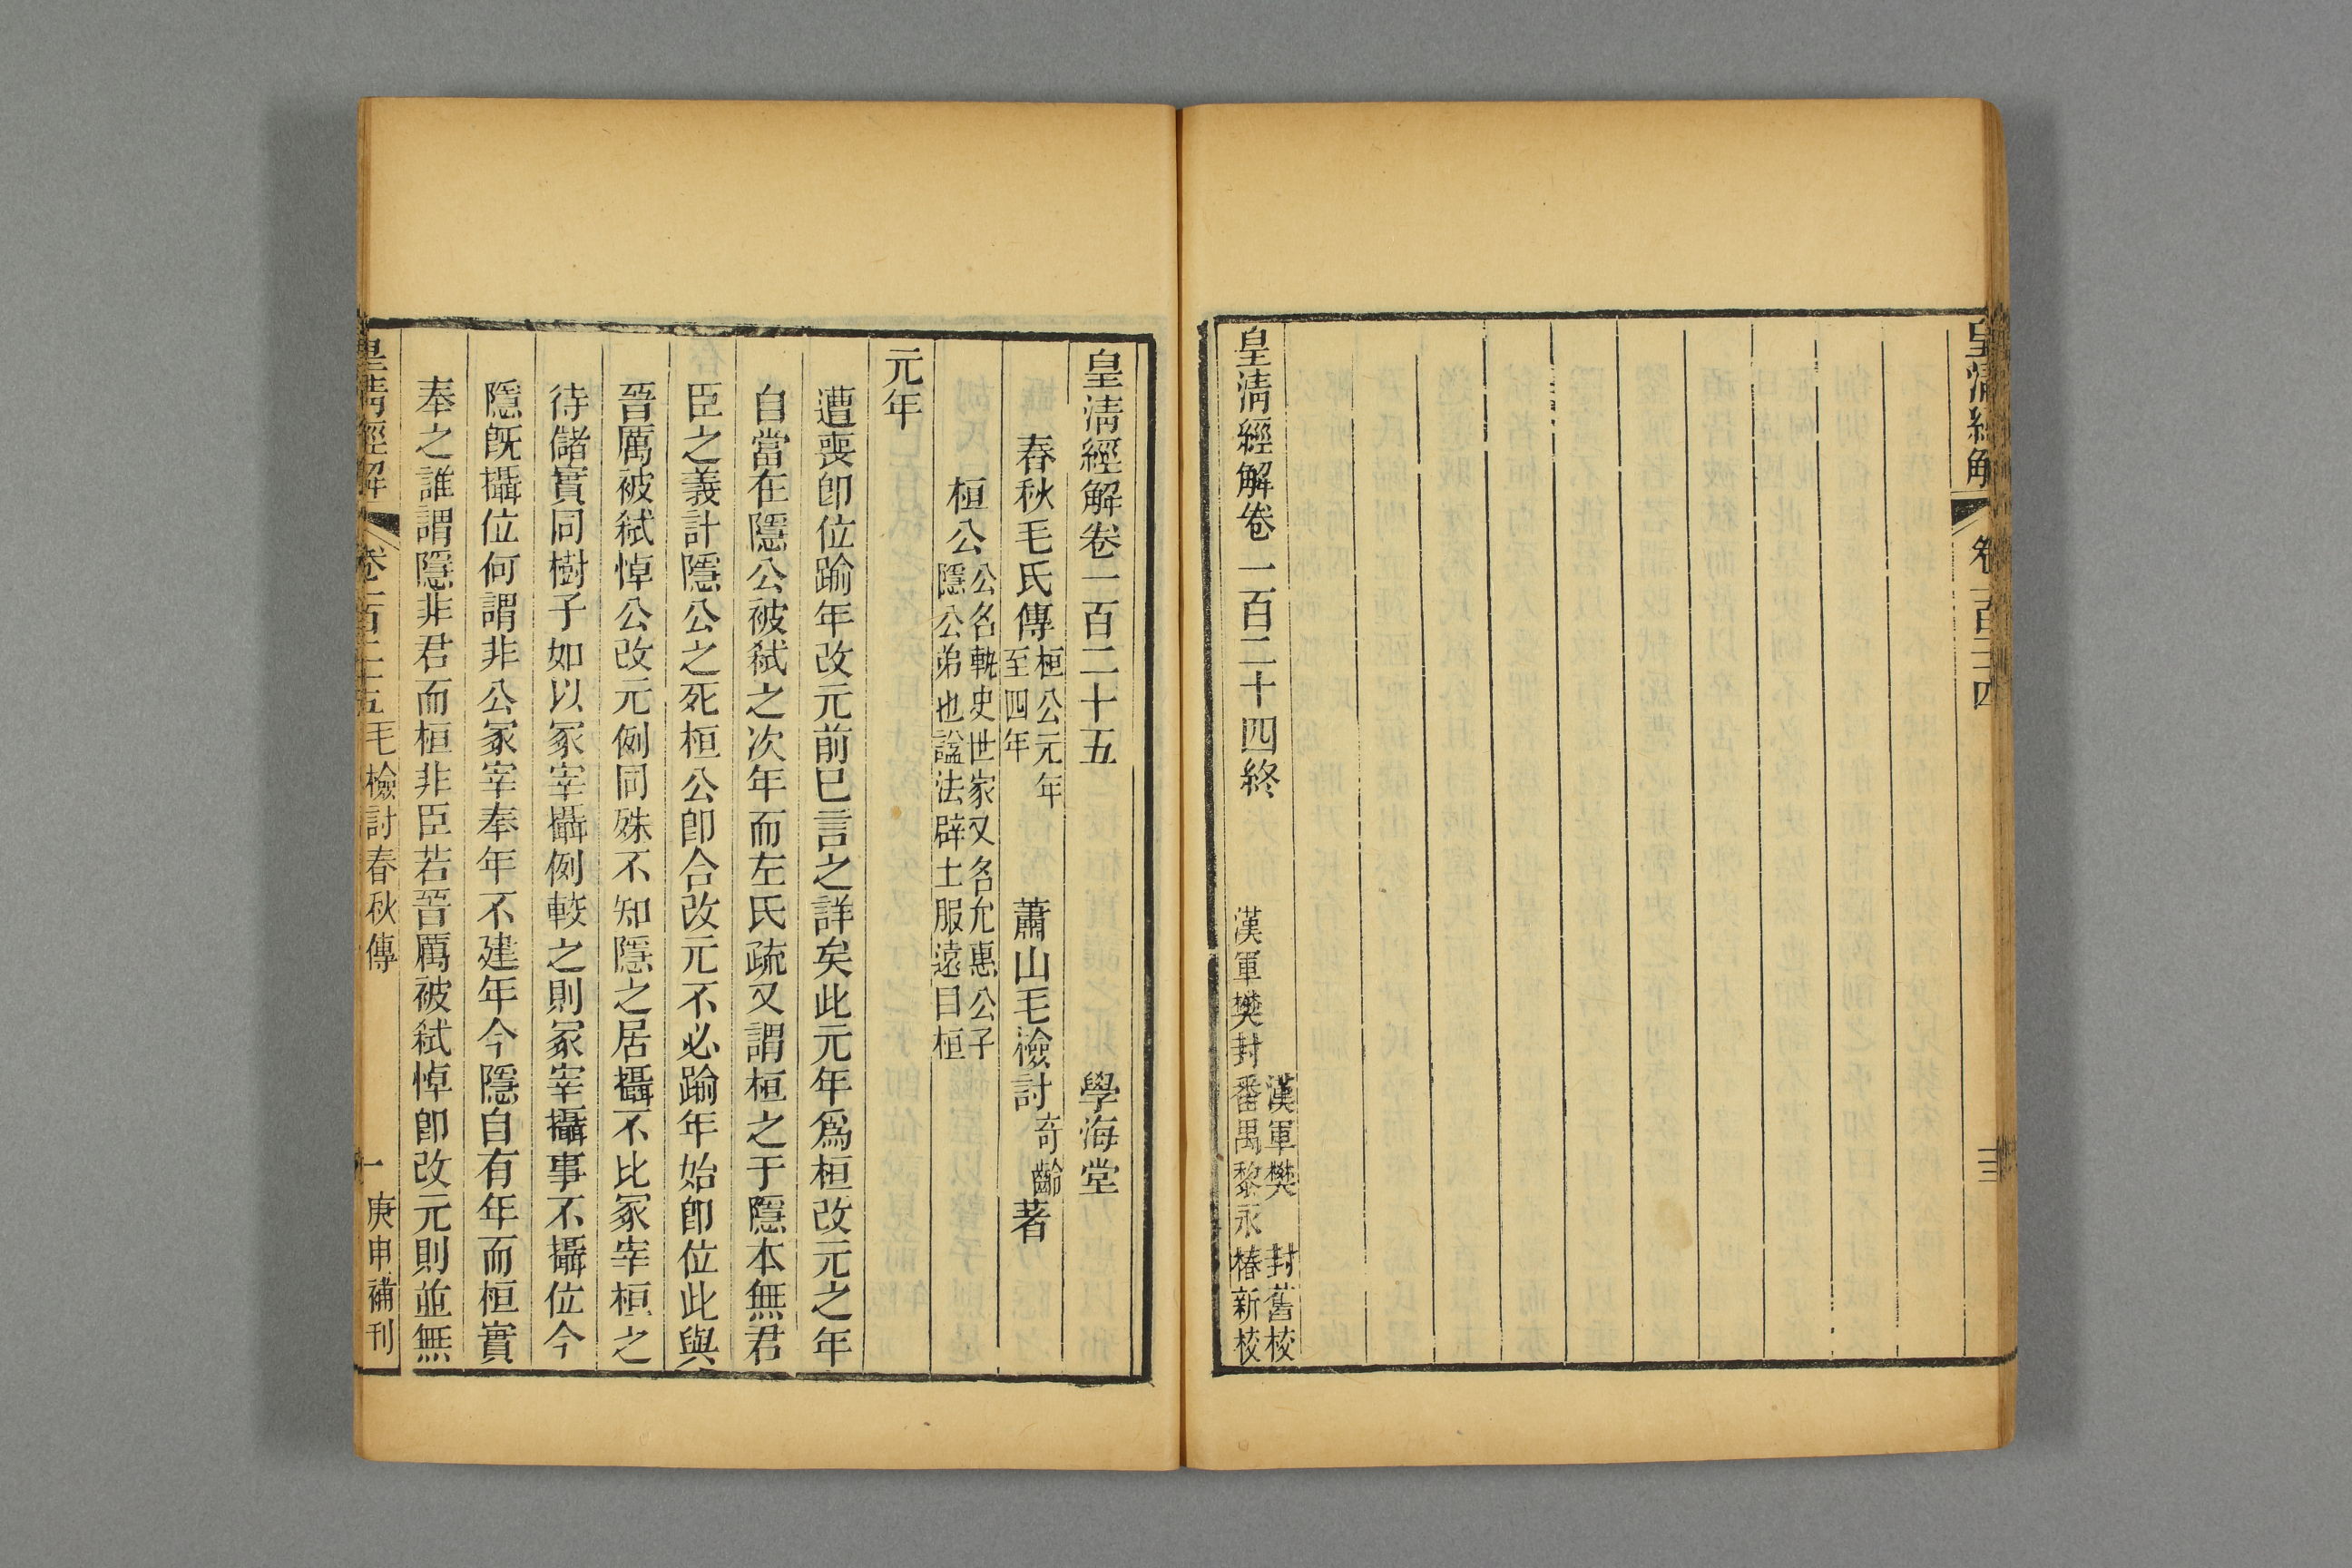 皇清經解
卷一百二十四
三三
皇清經解卷一百二十四終
漢軍樊 封舊校
漢軍樊封番禺黎永椿新校
皇清經解卷一百二十五 學海堂
春秋毛氏傳桓公元年至四年 蕭山毛檢討奇齡著
桓公公名軌史世家又名允惠公子隱公弟也諡法辟土服遠曰桓
元年
遭喪卽位踰年改元前已言之詳矣此元年爲桓改元之年
自當在隱公被弒之次年而左氏疏又謂桓之于隱本無君
臣之義計隱公之死桓公卽合改元不必踰年始卽位此與
晉厲被弒悼公改元例同殊不知隱之居攝不比冢宰桓之
待儲實同樹子如以冢宰攝例較之則冢宰攝事不攝位今
隱旣攝位何謂非公冢宰奉年不建年今隱自有年而桓實
奉之誰謂隱非君而桓非臣若晉厲被弒悼卽改元則並無
皇清經解 卷一百二十五 毛檢討春秋傳 一 庚申補刊